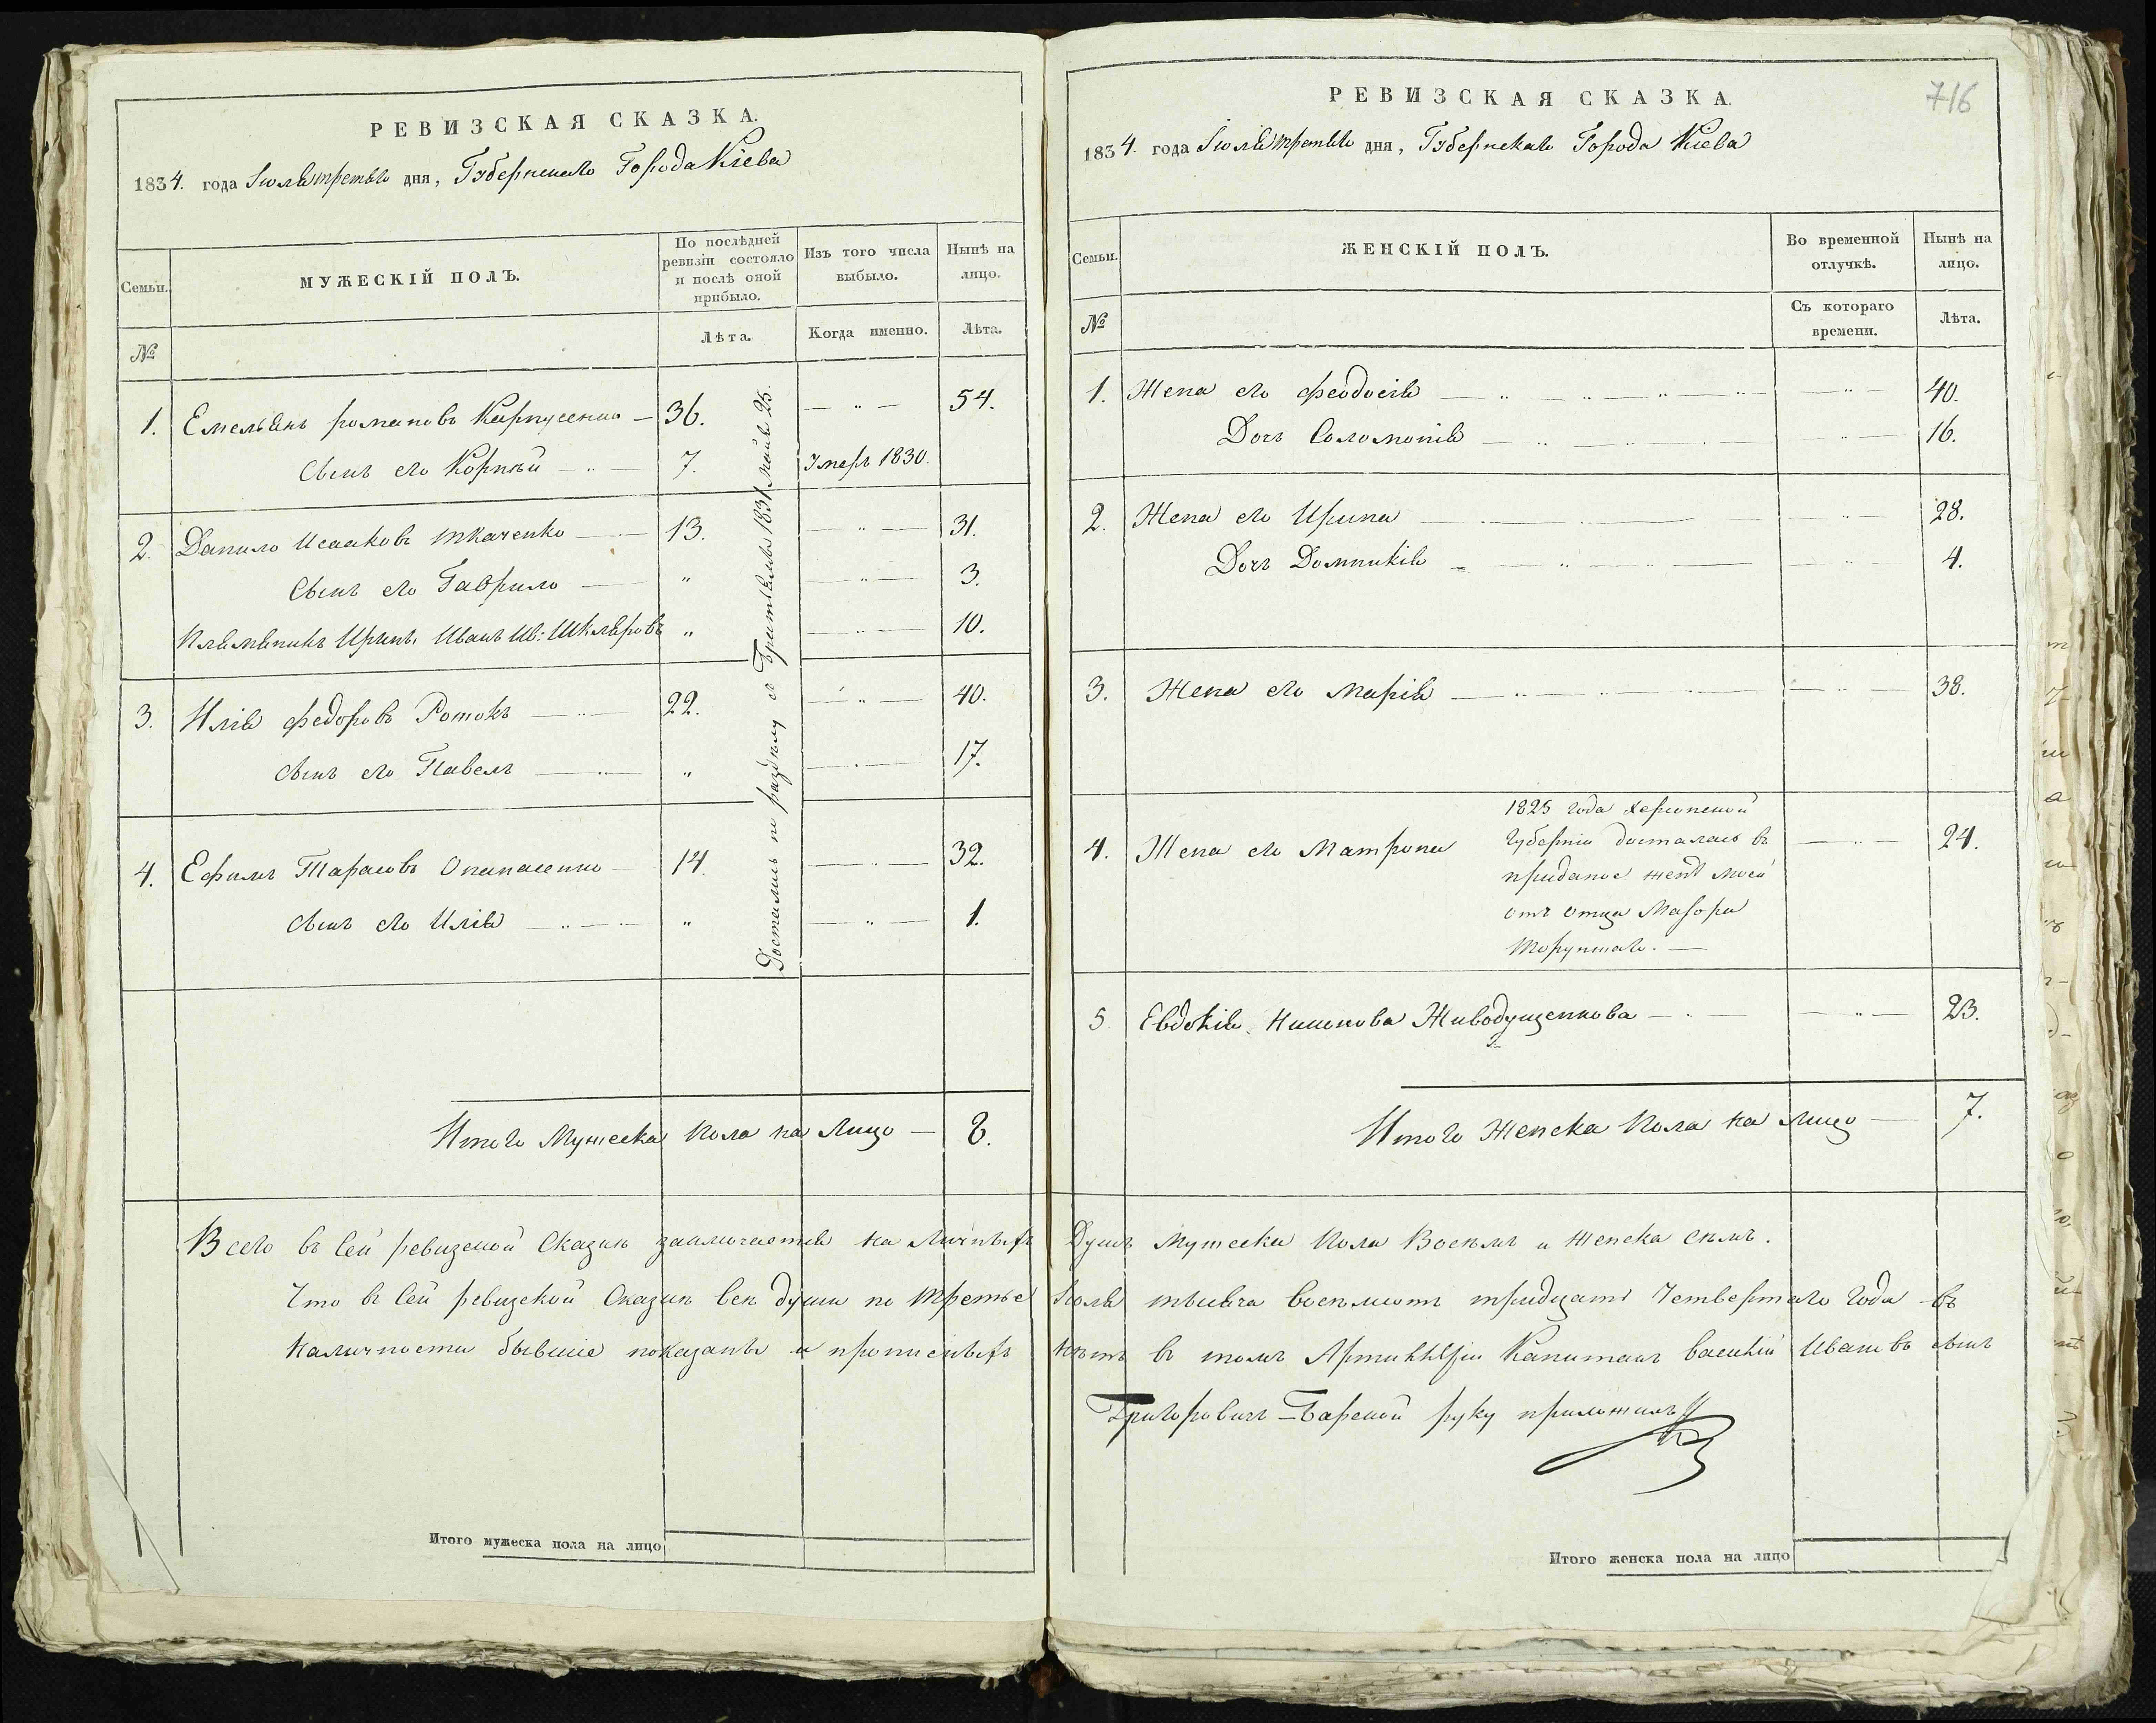 РЕВИЗСКАЯ СКАЗКА.
1834. года Іюля третьяго дня, Губернскаго Города Кіева
Семьи.
МУЖЕСКІЙ ПОЛЪ.
По послѣдней
ревизіи состояло
и послѣ оной
прибыло.
Изъ того числа
выбыло.
Нынѣ на
лицо.
№
Лѣта.
Когда именно.
Лѣта.
1. Емельянъ романовъ Карпусенко — 36. — „ — 54.
Сынъ его Корнѣй — „ — 7. Умеръ 1830.
2. Данило Исааковъ ткаченко — 13. — „ — 31.
Сынъ его Гаврило — „ — „ — 3.
Племянникъ Ирины Иванъ Ив: Шкляровъ „ — „ — 10.
3. Илія Федоровъ Ротокъ — „ — 22. — „ — 40.
сынъ его Павелъ — „ — „ — „ — 17.
4. Ефимъ Тарасовъ Опанасенко 14. — „ — 32.
сынъ его Илія — „ — „ — „ — 1.
Достались по раздѣлу съ 1831 Маія 25.
Итого Мужеска пола на Лицо — 8.
Всего въ сей ревизской Сказкѣ заключается на личныхъ
Что въ сей ревизской Сказкѣ всѣ души по третье
наличности бывшіе показаны и прописныхъ
Итого мужеска пола на лицо
РЕВИЗСКАЯ СКАЗКА.
716
1834. года Іюля третьяго дня, Губернскаго Города Кіева
Семьи.
ЖЕНСКІЙ ПОЛЪ.
Во временной
отлучкѣ.
Нынѣ на
лицо.
№
Съ котораго
времени.
Лѣта.
1. Жена его Феодосія — „ — 40.
Дочь Соломонія — „ — 16.
2. Жена его Ирина — „ — 28.
Дочь Домникія — „ — 4.
3. Жена его Марія — „ — 38.
4. Жена его Матрона — „ — 24.
1825 года Херсонской
Губерніи досталась въ
приданое женѣ моей
отъ отца Маіора
5. Евдокія Живодущенкова — „ — 23.
Итого Женска Пола на лицо — 7.
Душъ Мужеска Пола Восемь и Женска семь.
Іюля тысяча восемьсотъ тридцать Четвертаго Года въ
нѣтъ въ томъ Артиллеріи Капитанъ Василій Ивановъ сынъ
Григоровичъ-Барской руку приложилъ
Итого женска пола на лицо